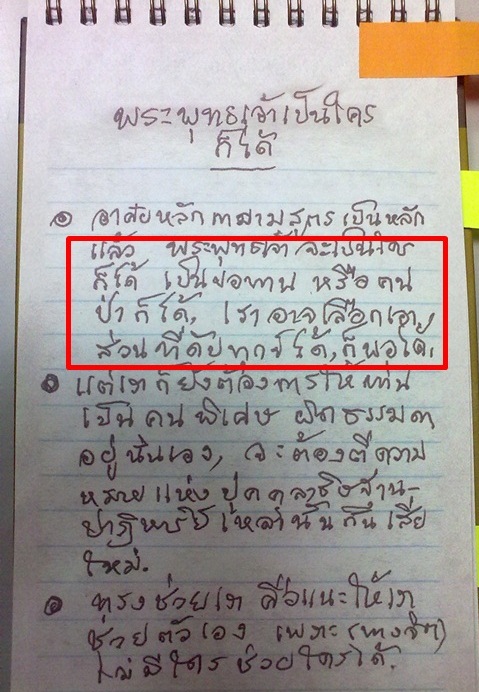 พระพุทธเจ้าเป็นใคร
ก็ได้
อาศัยหลักกาลามสูตร เป็นหลัก
แล้ว พระพุทธเจ้า จะเป็นใคร
ก็ได้ เป็นขอทาน หรือ คน
ป่า ก็ได้, เราอาจเลือกเอา
ส่วนที่ดับทุกข์ได้, ก็พอใจ.
แต่เราก็ยังต้องการให้ท่าน
เป็นคนพิเศษ ผิดธรรมดา
อยู่นั่นเอง, จะต้องตีความ
หมายแห่งปุคคลาธิษฐาน-
ปาฏิหาริย์เหล่านั้นกันเสีย
ใหม่.
ทรงช่วยเรา คือแนะให้เรา
ช่วยตัวเอง เพราะ (ทางจิต)
ไม่มีใครช่วยใครได้.